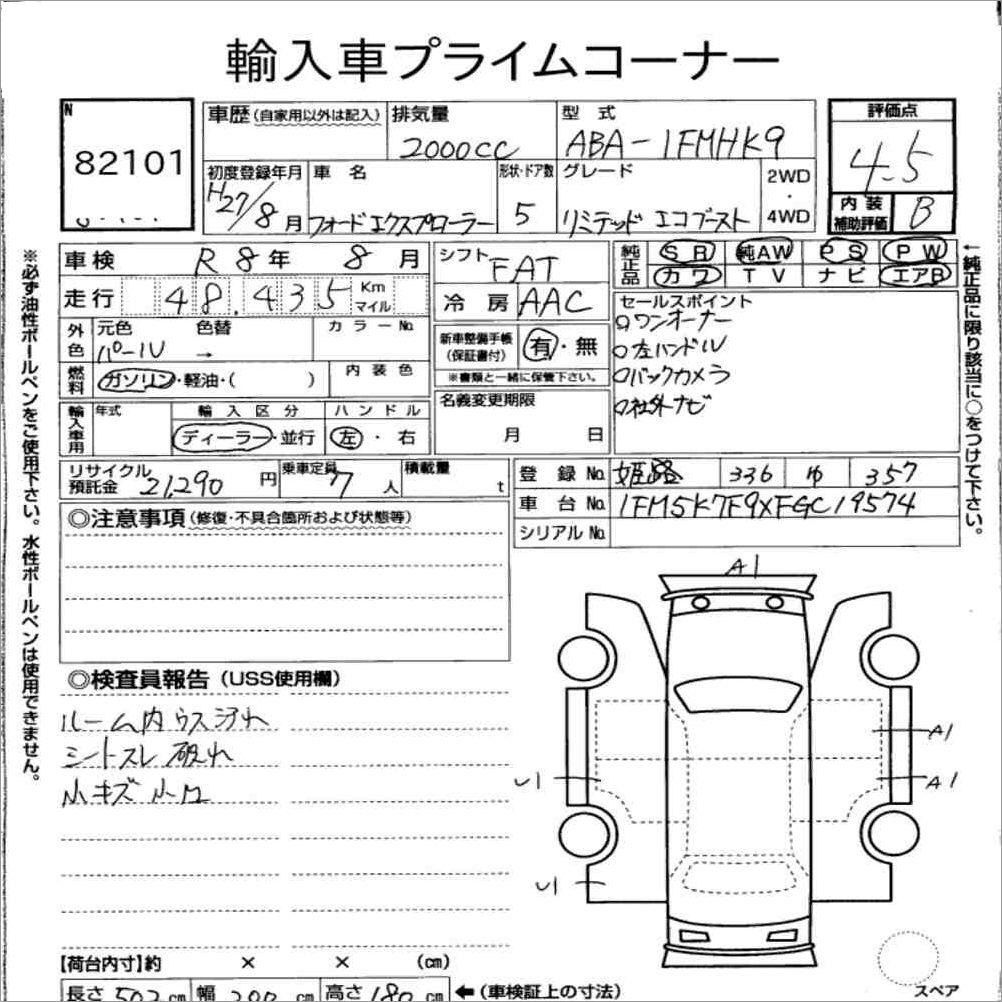 輸入車プライムコーナー
N
82101
車歴 (自家用以外は記入)
排気量
2000cc
型式
ABA-1FMHK9
評価点
4.5
内装補助評価 B
初度登録年月
H27/8月
車名
フォードエクスプローラー
形状・ドア数
5
グレード
リミテッド エコブースト
2WD
・
4WD
車検 R8年 8月
走行 48,435 Km マイル
シフト FAT
冷房 AAC
純正品 SR 純AW PS PW
カワ TV ナビ エアB
外色 元色 パール 色替 → カラーNo.
燃料 ガソリン・軽油・( )
内装色
新車整備手帳(保証書付) 有・無
※書類と一緒に保管下さい。
名義変更期限
月 日
セールスポイント
ワンオーナー
左ハンドル
バックカメラ
社外ナビ
輸入車用 年式
輸入区分
ディーラー・並行
ハンドル
左・右
リサイクル預託金 21,290円
乗車定員 7人
積載量 t
登録No. 姫路 336 ゆ 357
車台No. 1FM5K7F9XFGC19574
シリアルNo.
◎注意事項 (修復・不具合箇所および状態等)
◎検査員報告 (USS使用欄)
ルーム内 ウス汚れ
シートスレ 破れ
小キズ 小凹
A1
A1
A1
U1
U1
【荷台内寸】約 × × (cm)
長さ 502 cm 幅 200 cm 高さ 180 cm ←(車検証上の寸法)
スペア
※必ず油性ボールペンをご使用下さい。水性ボールペンは使用できません。
←純正品に限り該当に○をつけて下さい。